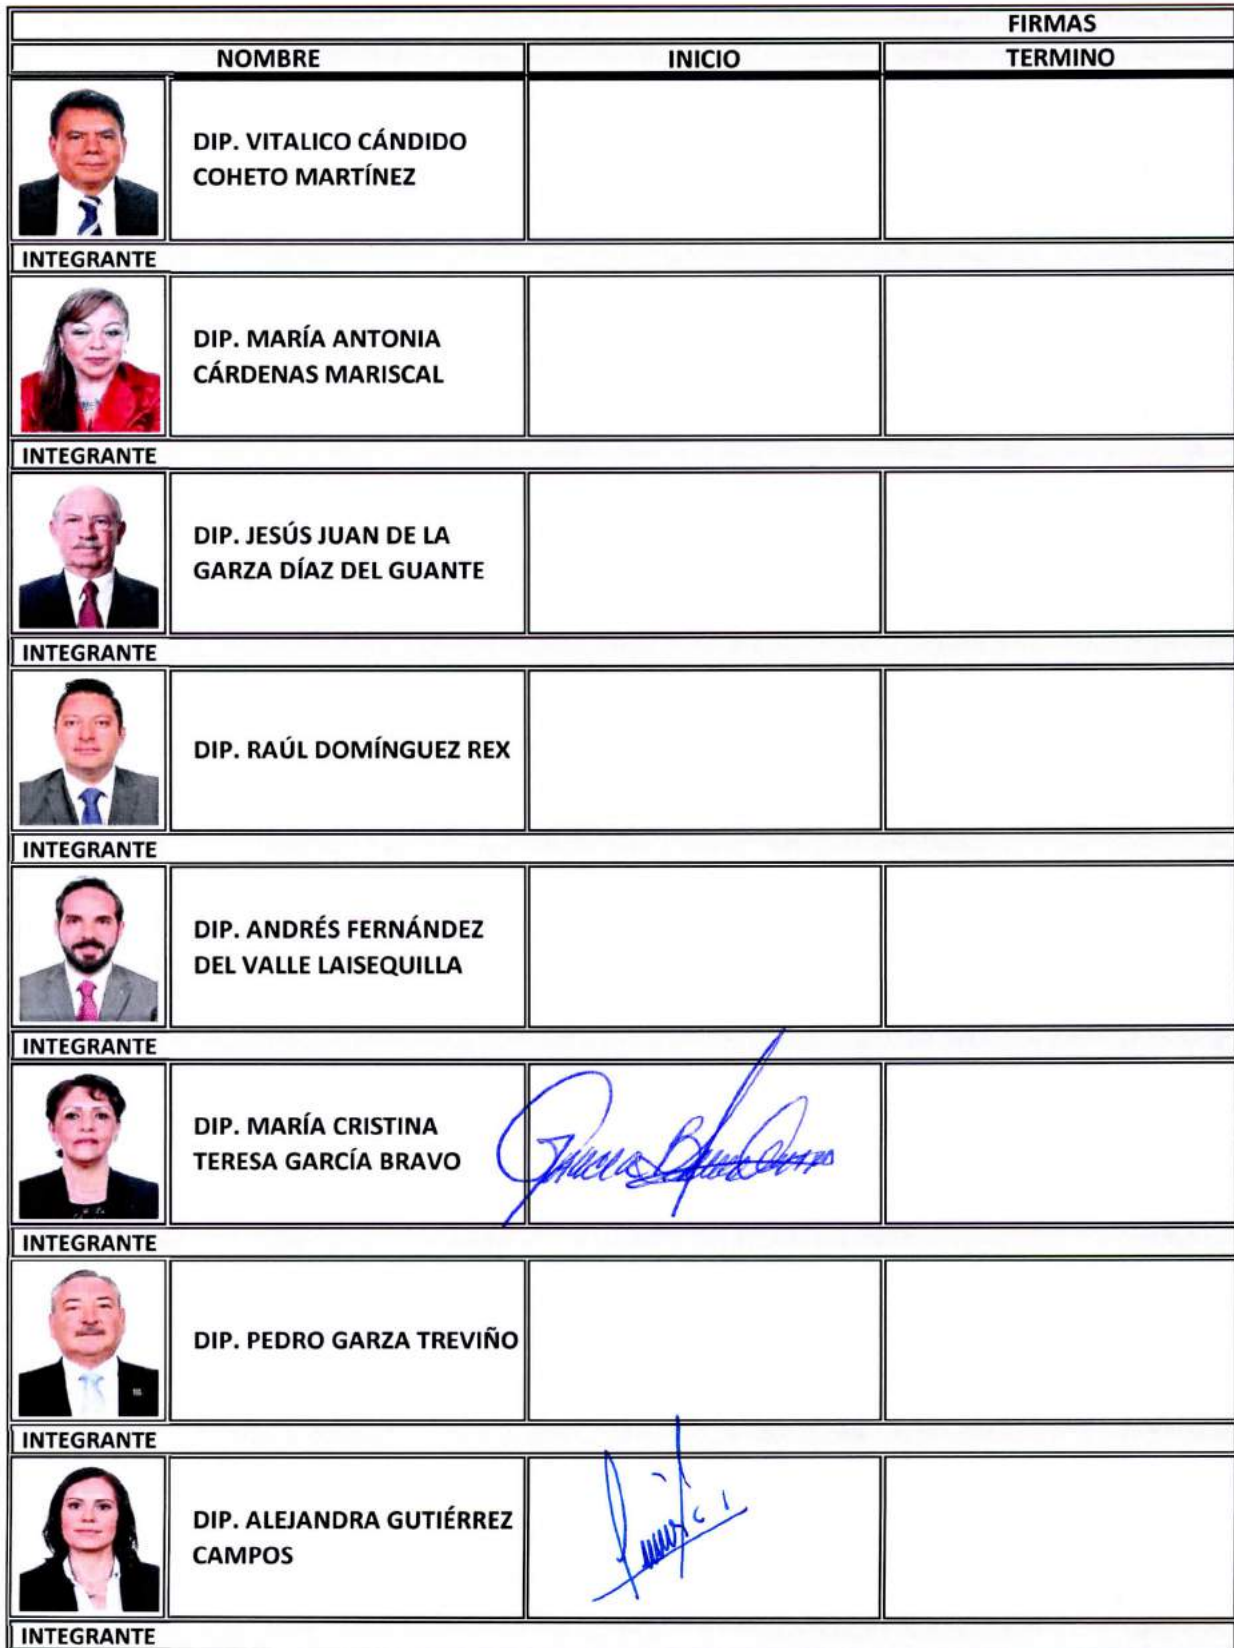 FIRMAS
NOMBRE INICIO TERMINO
DIP. VITALICO CÁNDIDO
COHETO MARTÍNEZ
INTEGRANTE
DIP. MARÍA ANTONIA
CÁRDENAS MARISCAL
INTEGRANTE
DIP. JESÚS JUAN DE LA
GARZA DÍAZ DEL GUANTE
INTEGRANTE
DIP. RAÚL DOMÍNGUEZ REX
INTEGRANTE
DIP. ANDRÉS FERNÁNDEZ
DEL VALLE LAISEQUILLA
INTEGRANTE
DIP. MARÍA CRISTINA
TERESA GARCÍA BRAVO
INTEGRANTE
DIP. PEDRO GARZA TREVIÑO
INTEGRANTE
DIP. ALEJANDRA GUTIÉRREZ
CAMPOS
INTEGRANTE